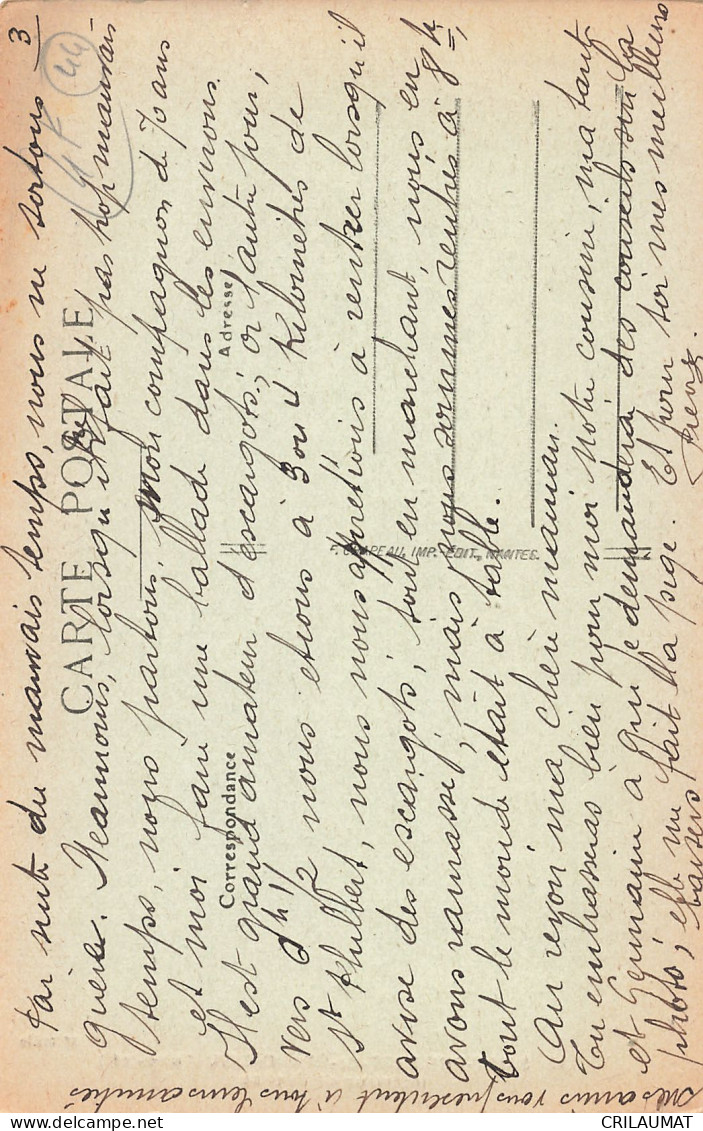 3
44
CARTE POSTALE
Correspondance
Adresse
F. CHAPEAU, IMP.-EDIT., NANTES
Par suite du mauvais temps, nous ne sortons
guère. Neanmoins, lorsqu'il ne fait pas trop mauvais
temps, nous partons, Mon compagnon de 70 ans
et moi faire une ballade dans les environs.
Il est grand amateur d'escargots; or l'autre jour,
vers 6h 1/2 nous etions à 3 ou 4 kilomètres de
St Philbert, nous nous apprêtions à rentrer lorsqu'il
avise des escargots; tout en marchant, nous en
avons ramassé, mais nous sommes rentrés à 8h,
tout le monde était à table.
Au revoir ma chère maman.
Tu embrasseras bien pour moi notre cousine, ma tante
et Germaine à qui je demanderai des conseils sur la
photo; elle me fait la pige. Et pour toi mes meilleurs
baisers
Mes amis vous présentent à tous leurs amitiés
CRILAUMAT